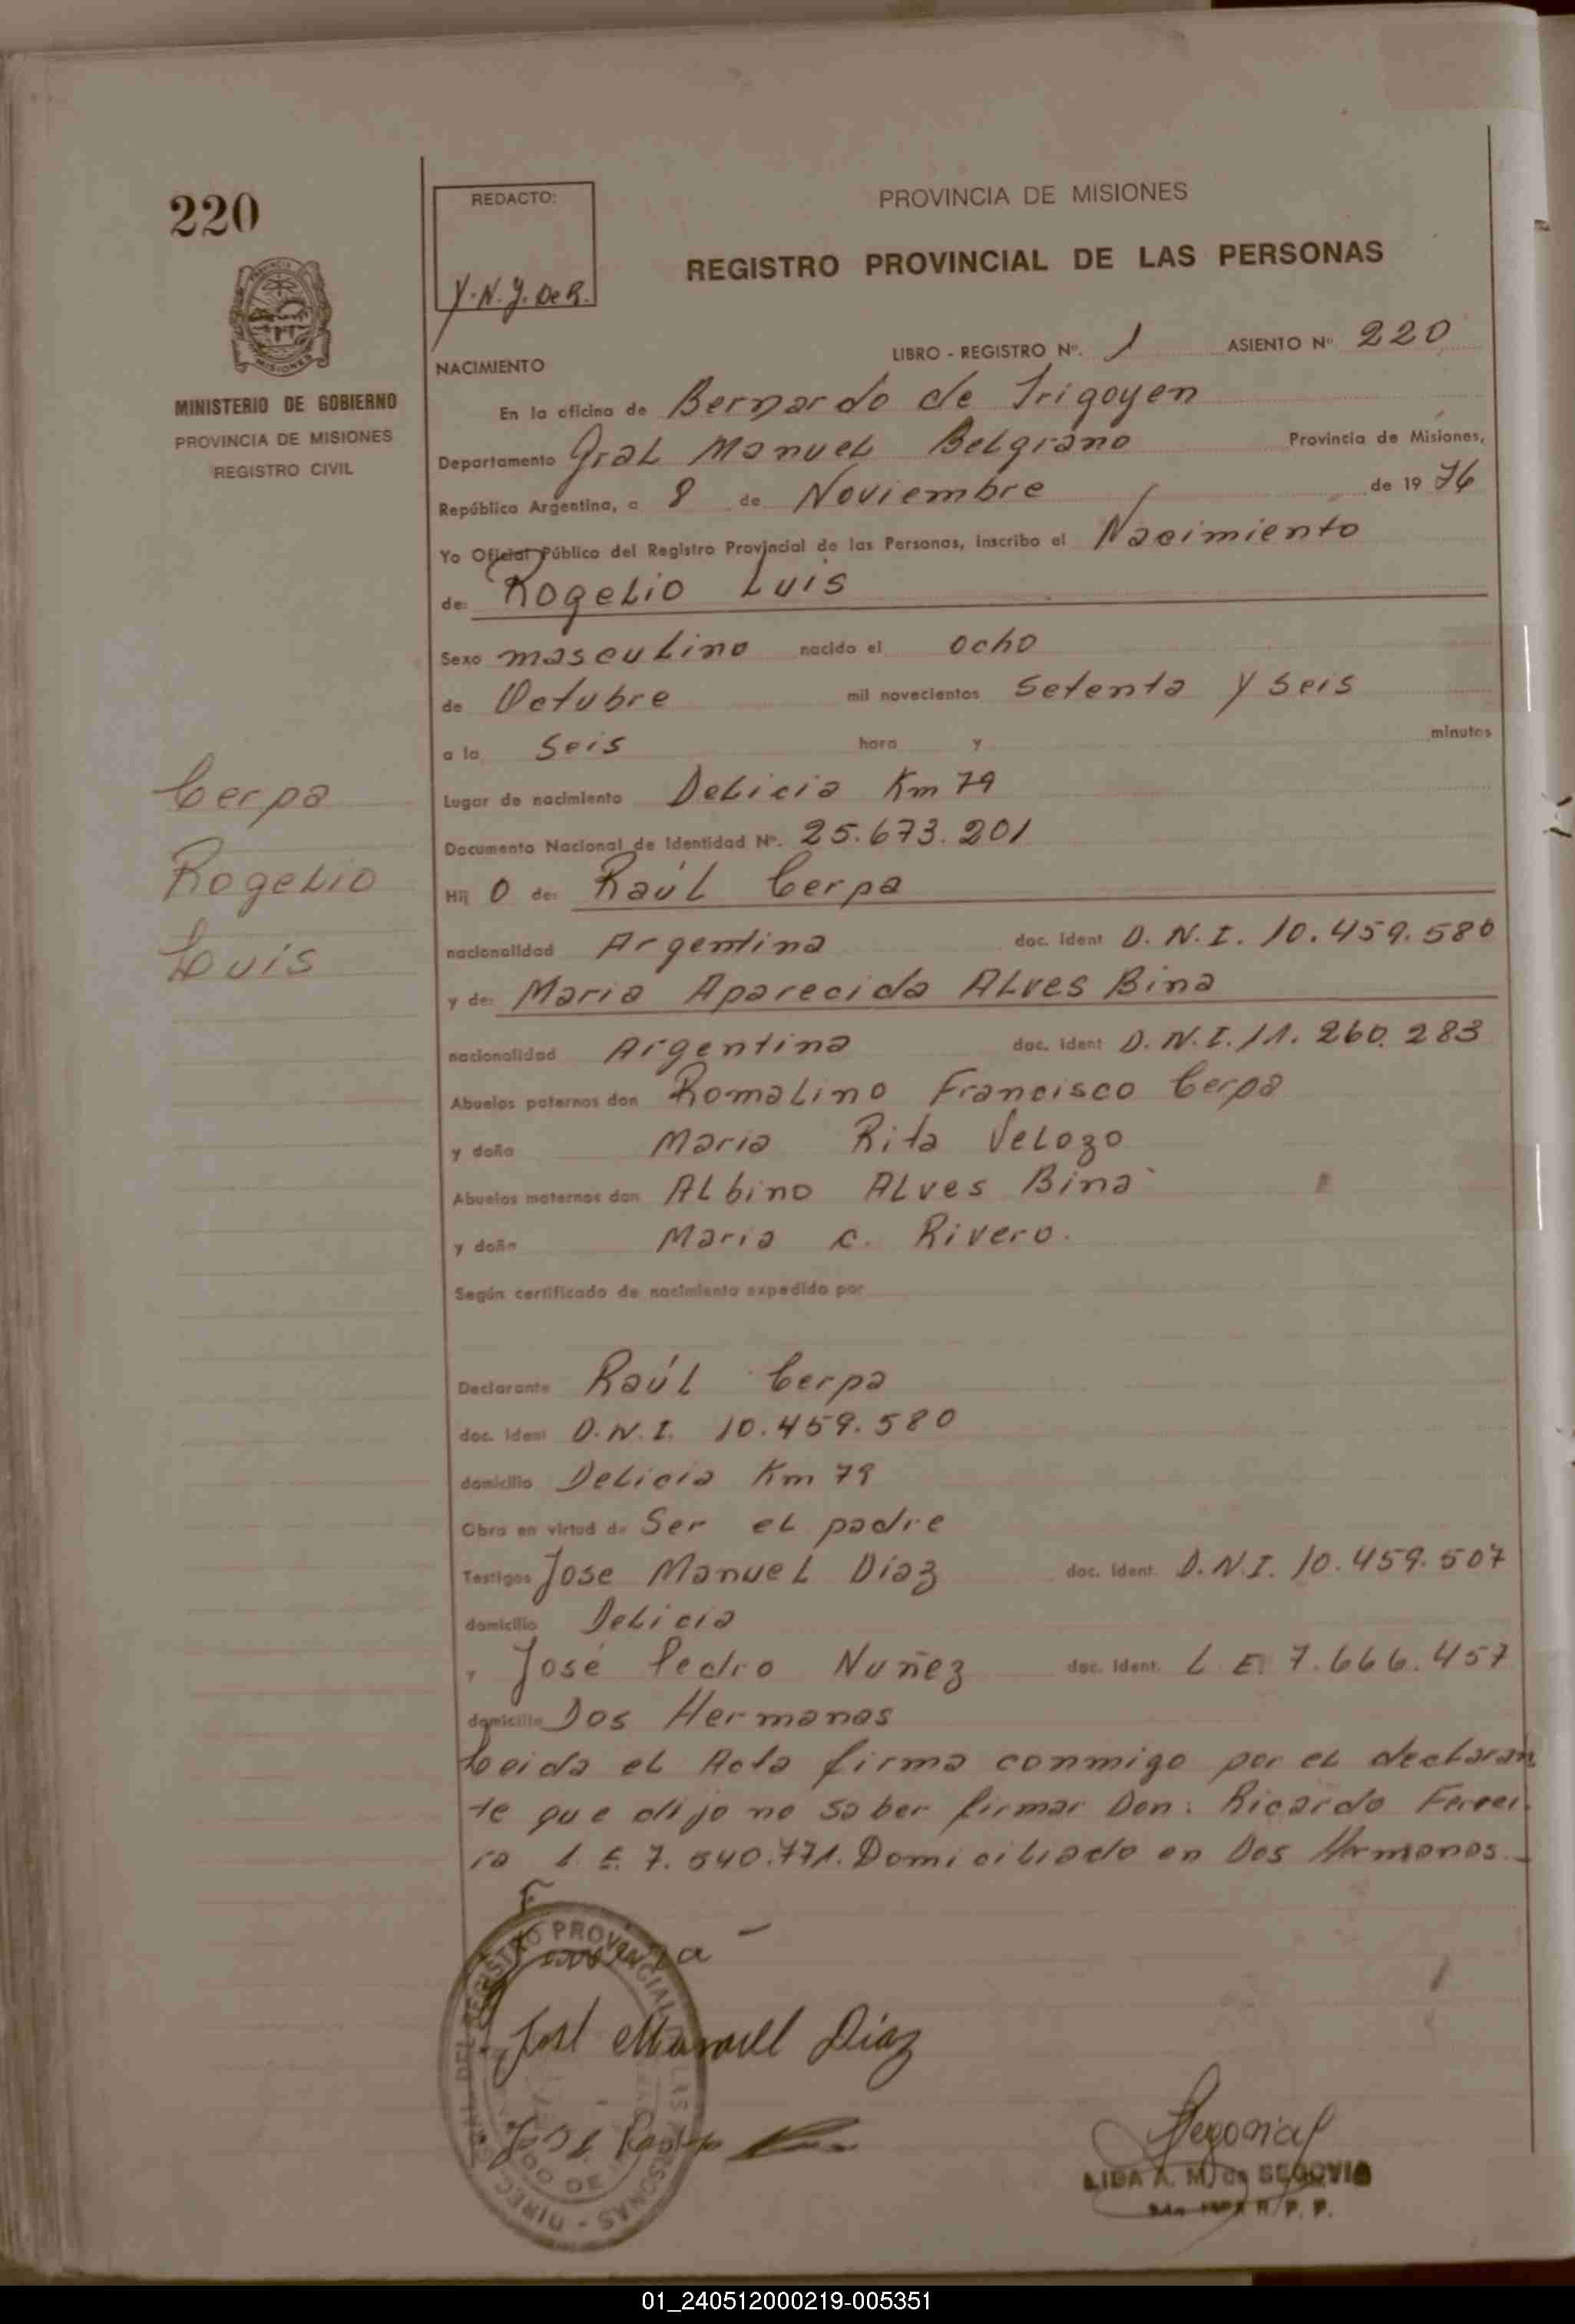 220
REDACTO:
Y.N.J. De R.
PROVINCIA DE MISIONES
REGISTRO PROVINCIAL DE LAS PERSONAS
MINISTERIO DE GOBIERNO
PROVINCIA DE MISIONES
REGISTRO CIVIL
NACIMIENTO
LIBRO - REGISTRO Nº. 1 ASIENTO Nº 220
En la oficina de Bernardo de Irigoyen
Departamento Gral Manuel Belgrano Provincia de Misiones,
República Argentina, a 8 de Noviembre de 1976
Yo Oficial Público del Registro Provincial de las Personas, inscribo el Nacimiento
de: Rogelio Luis
Sexo masculino nacido el ocho
de Octubre mil novecientos Setenta y seis
a la Seis hora y minutos
Lugar de nacimiento Delicia Km 79
Documento Nacional de Identidad Nº. 25.673.201
Cerpa
Rogelio
Luis
Hij o de: Raúl Cerpa
nacionalidad Argentina doc. ident D.N.I. 10.459.580
y de: Maria Aparecida Alves Bina
nacionalidad Argentina doc. ident D.N.I. 11.260.283
Abuelos paternos don Romalino Francisco Cerpa
y doña Maria Rita Velozo
Abuelos maternos don Albino Alves Bina
y doña Maria C. Rivero.
Según certificado de nacimiento expedido por
Declarante Raúl Cerpa
doc. ident D.N.I. 10.459.580
domicilio Delicia Km 79
Obra en virtud de Ser el padre
Testigos Jose Manuel Diaz doc. ident. D.N.I. 10.459.507
domicilio Delicia
y José Pedro Nuñez doc. ident. L E 7.666.457
domicilio Dos Hermanas
Leida el Acta firma conmigo por el declaran
te que dijo no saber firmar Don: Ricardo Ferrei
ra L.E. 7.540.771. Domiciliado en Dos Hermanas.
José Manuel Díaz
LIDA A. M. de SEGOVIA
R. P. P.
01_240512000219-005351